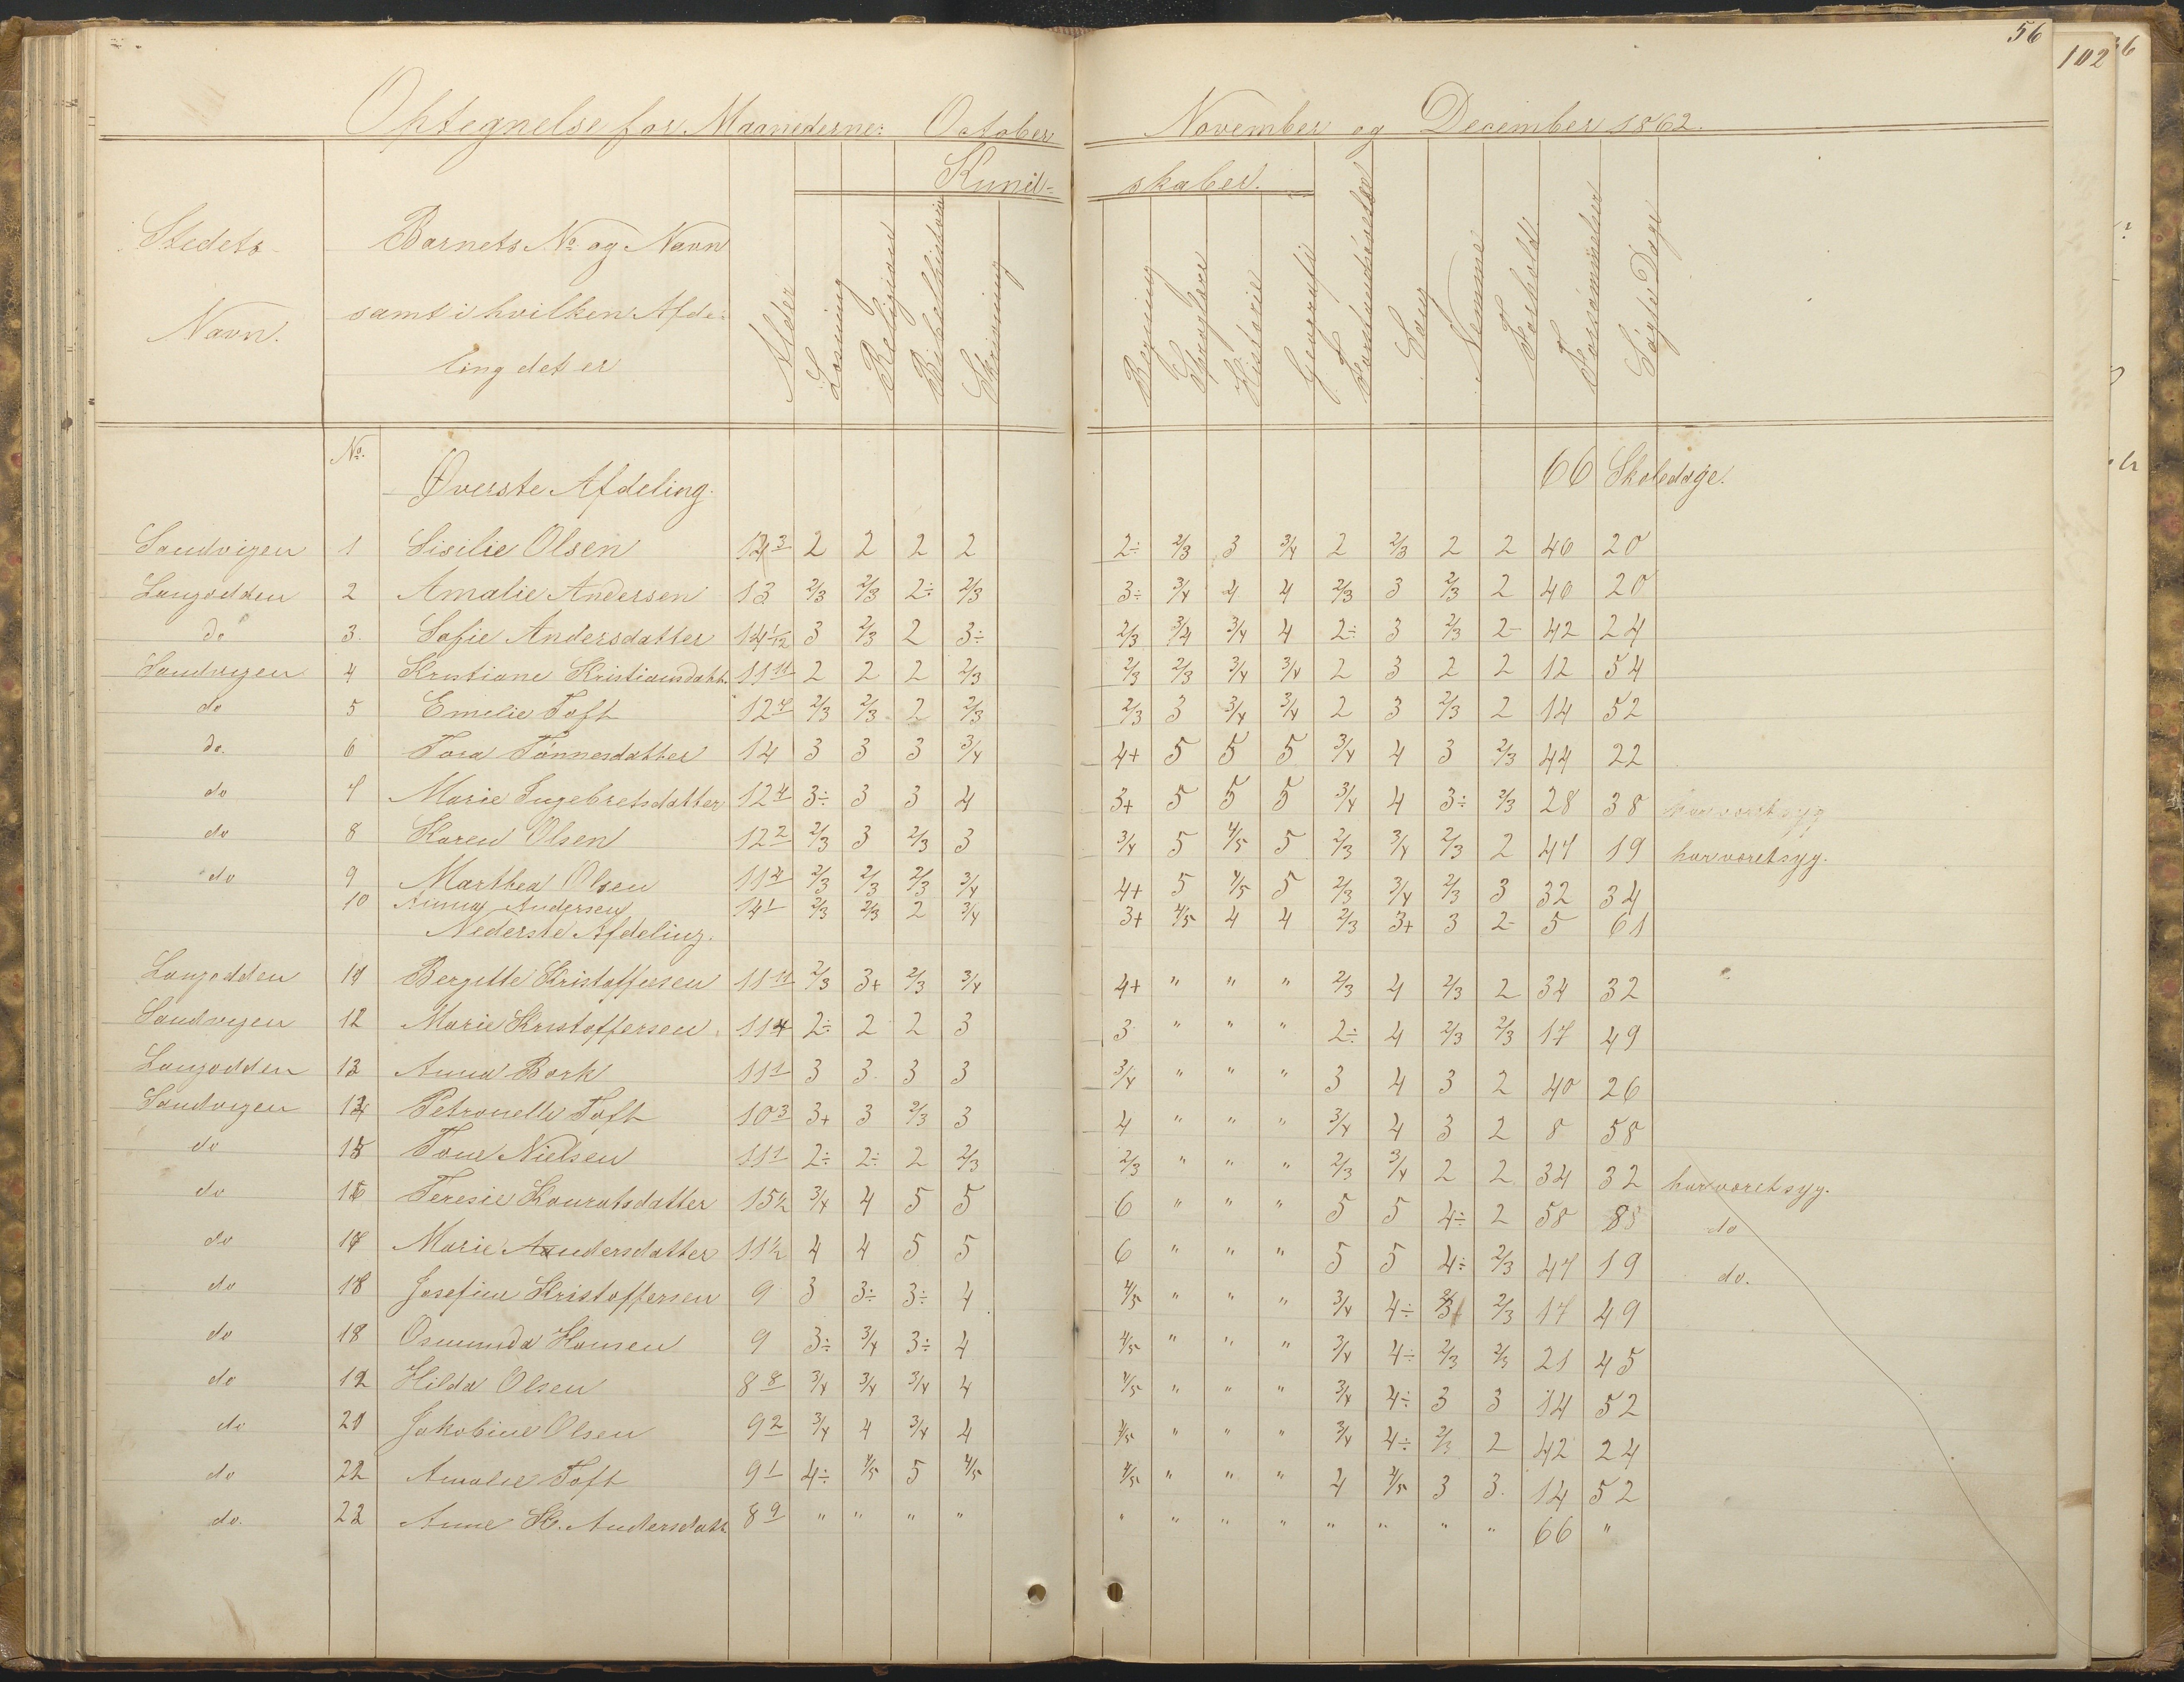 56
102
Optegnelse for Maanederne: October November og December 1862.
Kund- skaber.
Stedets Navn.
Barnets No og Navn samt i hvilken Afde- ling det er
Alder
Læsning
Religion
Bibelhistorie
Skrivning
Regning
Sproglære
Historie
Geografi
Forstandsøvelser
Sang
Nemme
Forhold
Forsømmelser
Søgte Dage
No.
Øverste Afdeling.
66 Skoledage.
Sandvigen 1 Sisilie Olsen 14 3 2 2 2 2 2÷ 2/3 3 3/4 2 2/3 2 2 46 20
Langodden 2 Amalie Andersen 13 2/3 2/3 2÷ 2/3 3÷ 3/4 4 4 2/3 3 2/3 2 46 20
do 3. Sofie Andersdatter 14 1/12 3 2/3 2 3÷ 2/3 3/4 3/4 4 2÷ 3 2/3 2- 42 24
Sandvigen 4 Kristiane Kristiansdatt. 11 11 2 2 2 2/3 2/3 2/3 3/4 3/4 2 3 2 2 12 54
do 5 Emelie Toft 12 7 2/3 2/3 2 2/3 2/3 3 3/4 3/4 2 3 2/3 2 14 52
do. 6 Tora Tønnesdatter 14 3 3 3 3/4 4+ 5 5 5 3/4 4 3 2/3 44 22
do 7 Marie Ingebretsdatter 12 4 3÷ 3 3 4 3+ 5 5 5 3/4 4 3÷ 2/3 28 38 har været syg
do 8 Karen Olsen 12 2 2/3 3 2/3 3 3/4 5 4/5 5 2/3 3/4 2/3 2 47 19 har været syg.
do 9 Marthea Olsen 11 4 2/3 2/3 2/3 3/4 4+ 5 4/5 5 2/3 3/4 2/3 3 32 34
10 Anna Andersen 14 1 2/3 2/3 2 3/4 3+ 4/5 4 4 2/3 3+ 3 2- 5 61
Nederste Afdeling.
Langodden 11 Bergitte Kristoffersen 11 11 2/3 3+ 2/3 3/4 4+ " " " 2/3 4 2/3 2 34 32
Sandvigen 12 Marie Kristoffersen 11 4 2÷ 2 2 3 3 " " " 2÷ 4 2/3 2/3 17 49
Langodden 13 Anna Bork 11 1 3 3 3 3 3/4 " " " 3 4 3 2 40 26
Sandvigen 14 Petronelle Toft 10 3 3+ 3 2/3 3 4 " " " 3/4 4 3 2 8 58
do 15 Tone Nielsen 11 1 2÷ 2÷ 2 2/3 2/3 " " " 2/3 3/4 2 2 34 32 har været syg.
do 16 Teresie Konratsdatter 15 1/2 3/4 4 5 5 6 " " " 5 5 4÷ 2 58 8 do
do 17 Marie Andersdatter 11 1/2 4 4 5 5 6 " " " 5 5 4÷ 2/3 47 19 do.
do 18 Josefine Kristoffersen 9 3 3÷ 3÷ 4 4/5 " " " 3/4 4÷ 2/3 2/3 17 49
do 18 Osmunda Hansen 9 3÷ 3/4 3÷ 4 4/5 " " " 3/4 4÷ 2/3 2/3 21 45
do 19 Hilda Olsen 8 8 3/4 3/4 3/4 4 4/5 " " " 3/4 4÷ 3 3 14 52
do 21 Jakobine Olsen 9 2 3/4 4 3/4 4 4/5 " " " 3/4 4÷ 2/3 2 42 24
do 22 Amalie Toft 9 1 4÷ 4/5 5 4/5 4/5 " " " 4 4/5 3 3. 14 52
do. 22 Anne H. Andersdatt 8 9 " " " " " " " " " " " " 66 "